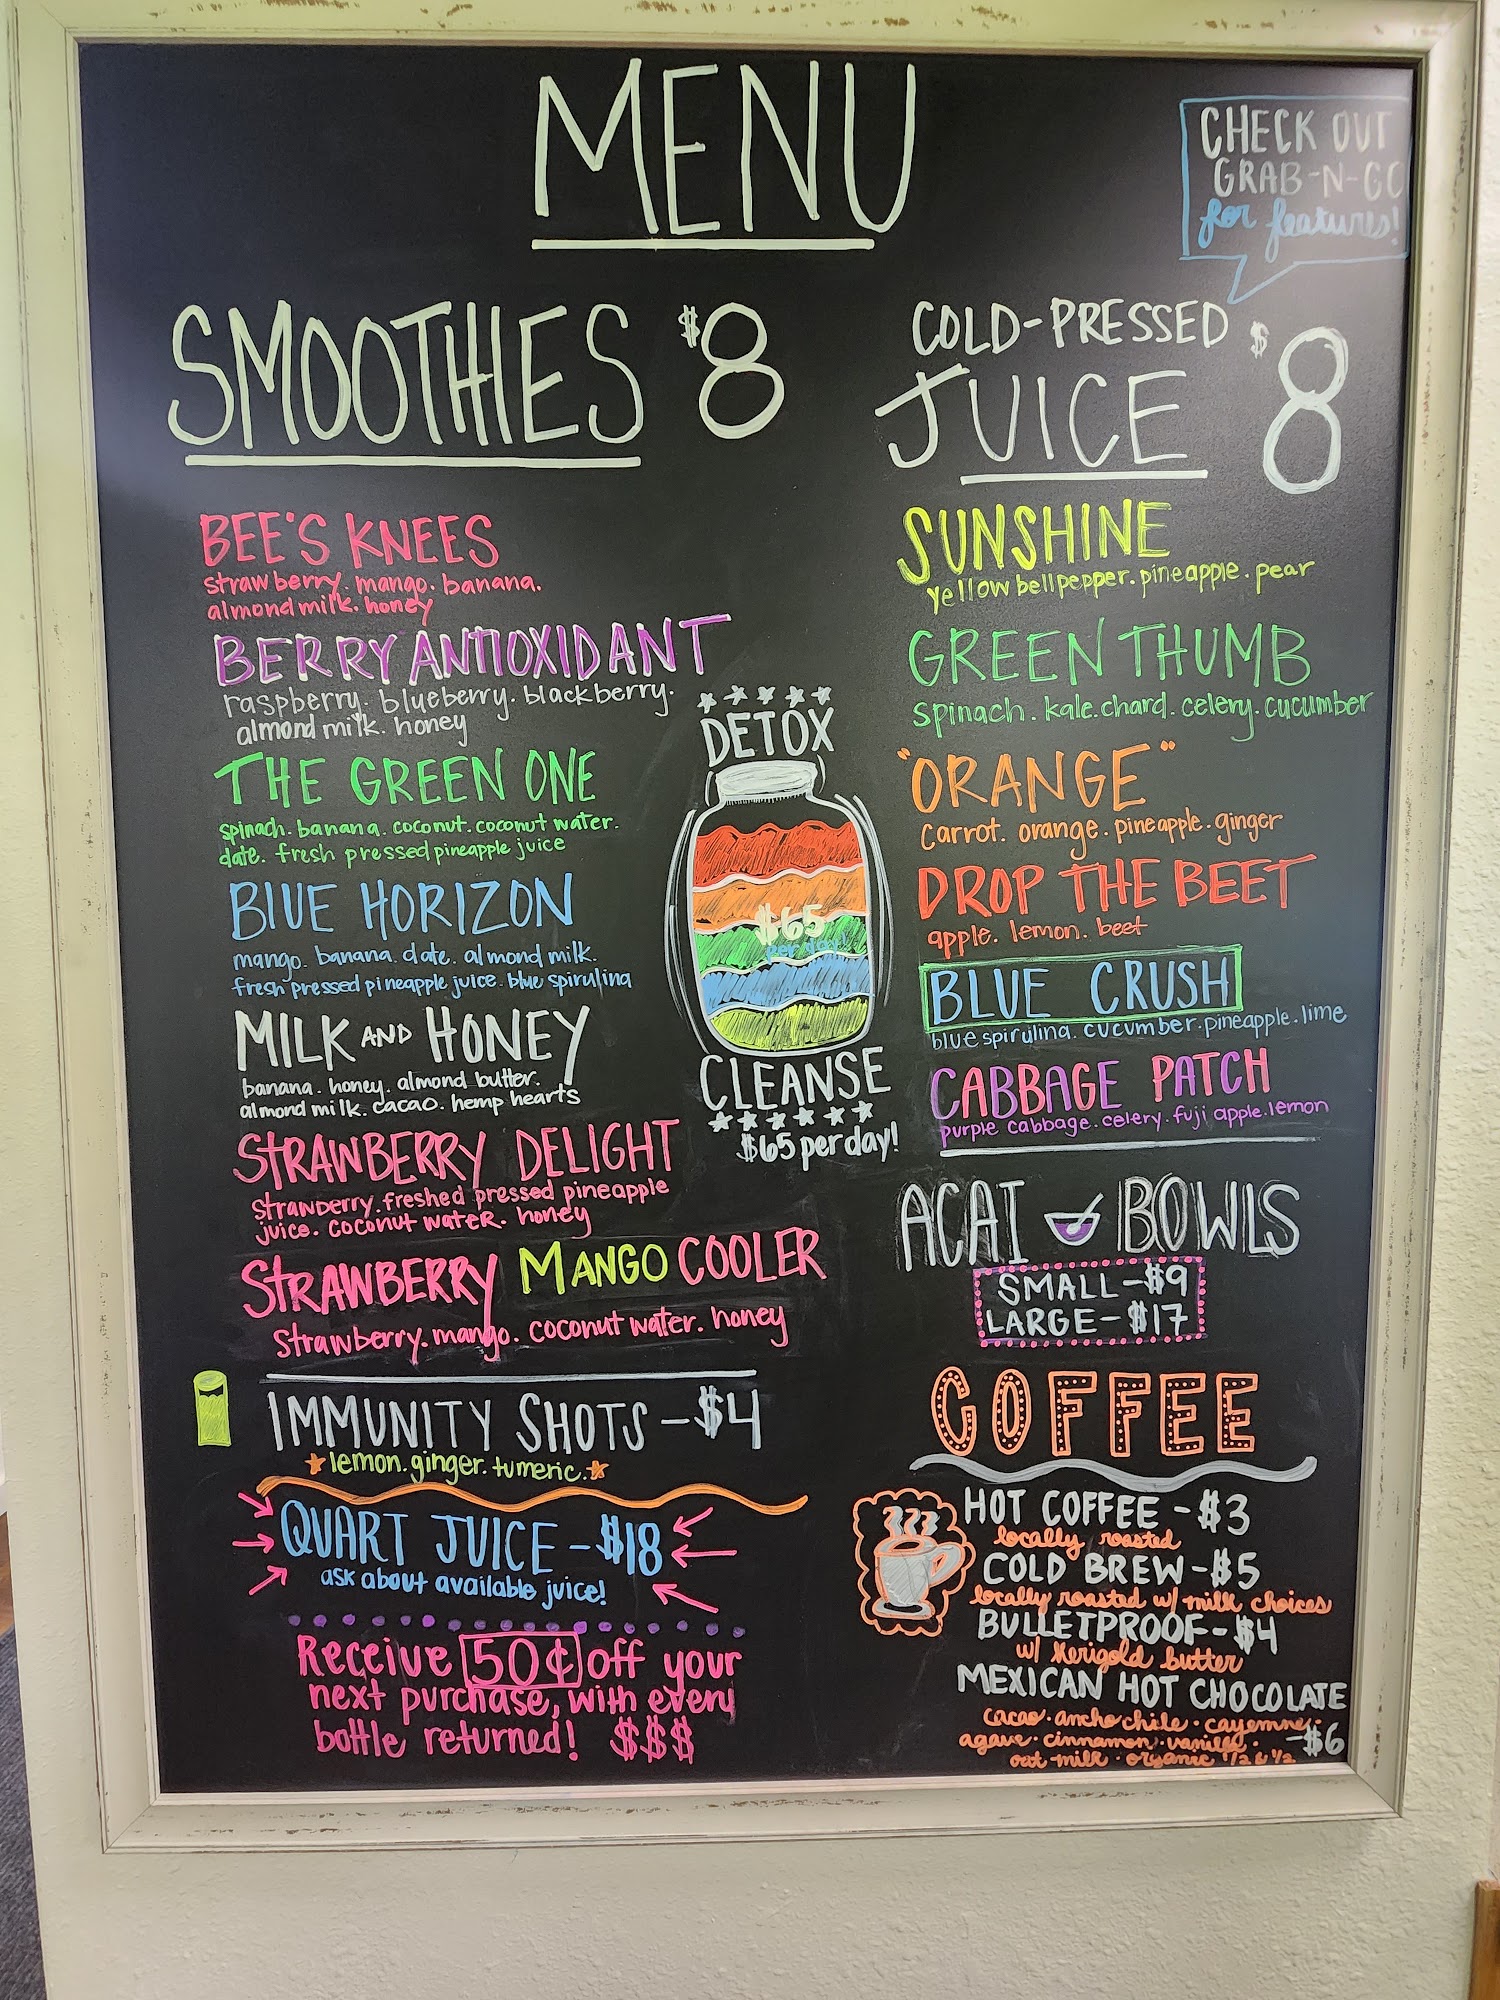 MENU
CHECK OUT
GRAB-N-GO
for features!
SMOOTHIES $8
BEE'S KNEES
strawberry. mango. banana.
almond milk. honey
BERRY ANTIOXIDANT
raspberry. blueberry. blackberry.
almond milk. honey
THE GREEN ONE
spinach. banana. coconut. coconut water.
date. fresh pressed pineapple juice
BLUE HORIZON
mango. banana. date. almond milk.
fresh pressed pineapple juice. blue spirulina
MILK AND HONEY
banana. honey. almond butter.
almond milk. cacao. hemp hearts
STRAWBERRY DELIGHT
strawberry. freshed pressed pineapple
juice. coconut water. honey
STRAWBERRY MANGO COOLER
strawberry. mango. coconut water. honey
IMMUNITY SHOTS - $4
lemon. ginger. tumeric.
QUART JUICE - $18
ask about available juice!
Receive 50¢ off your
next purchase, with every
bottle returned! $$$
DETOX
$65
per day!
CLEANSE
$65 per day!
COLD-PRESSED
JUICE $8
SUNSHINE
yellow bell pepper. pineapple. pear
GREEN THUMB
spinach. kale. chard. celery. cucumber
"ORANGE"
carrot. orange. pineapple. ginger
DROP THE BEET
apple. lemon. beet
BLUE CRUSH
blue spirulina. cucumber. pineapple. lime
CABBAGE PATCH
purple cabbage. celery. fuji apple. lemon
ACAI BOWLS
SMALL - $9
LARGE - $17
COFFEE
HOT COFFEE - $3
locally roasted
COLD BREW - $5
locally roasted w/ milk choices
BULLETPROOF - $4
w/ Kerigold butter
MEXICAN HOT CHOCOLATE
cacao. ancho chile. cayenne.
agave. cinnamon. vanilla. - $6
oat milk. organic 1/2 & 1/2